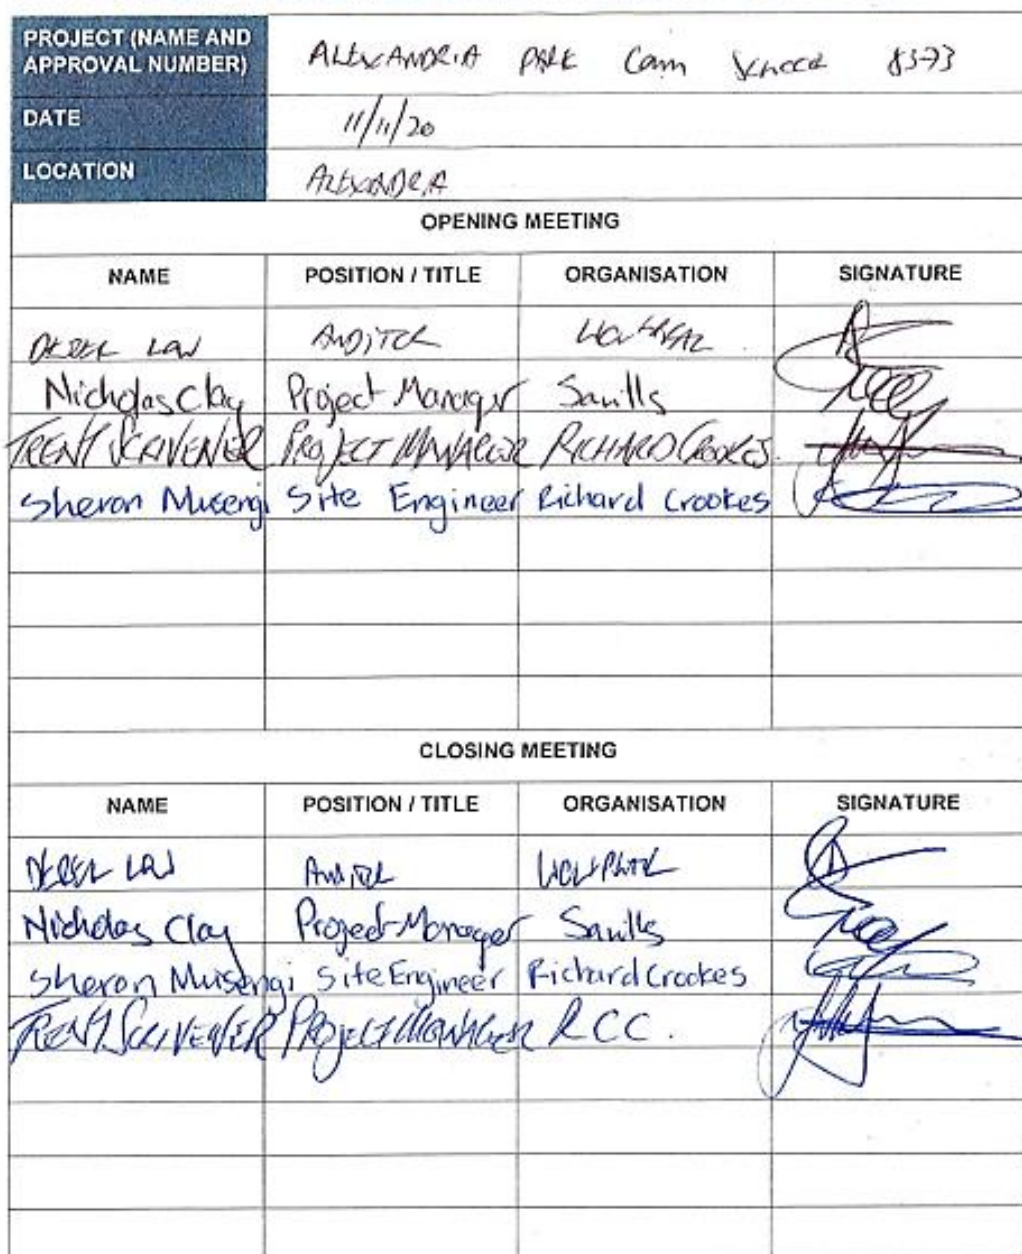 PROJECT (NAME AND APPROVAL NUMBER) ALEXANDRIA PARK Comm School 8373
DATE 11/11/20
LOCATION ALEXANDRIA
OPENING MEETING
NAME POSITION / TITLE ORGANISATION SIGNATURE
DEREK LOW AUDITOR
Nicholas Clay Project Manager Savills
TRENT SCRIVENER PROJECT MANAGER RICHARD CROOKES.
Sheron Musengi Site Engineer Richard Crookes
CLOSING MEETING
NAME POSITION / TITLE ORGANISATION SIGNATURE
DEREK LOW AUDITOR
Nicholas Clay Project Manager Savills
Sheron Musengi Site Engineer Richard Crookes
TRENT SCRIVENER PROJECT MANAGER RCC.